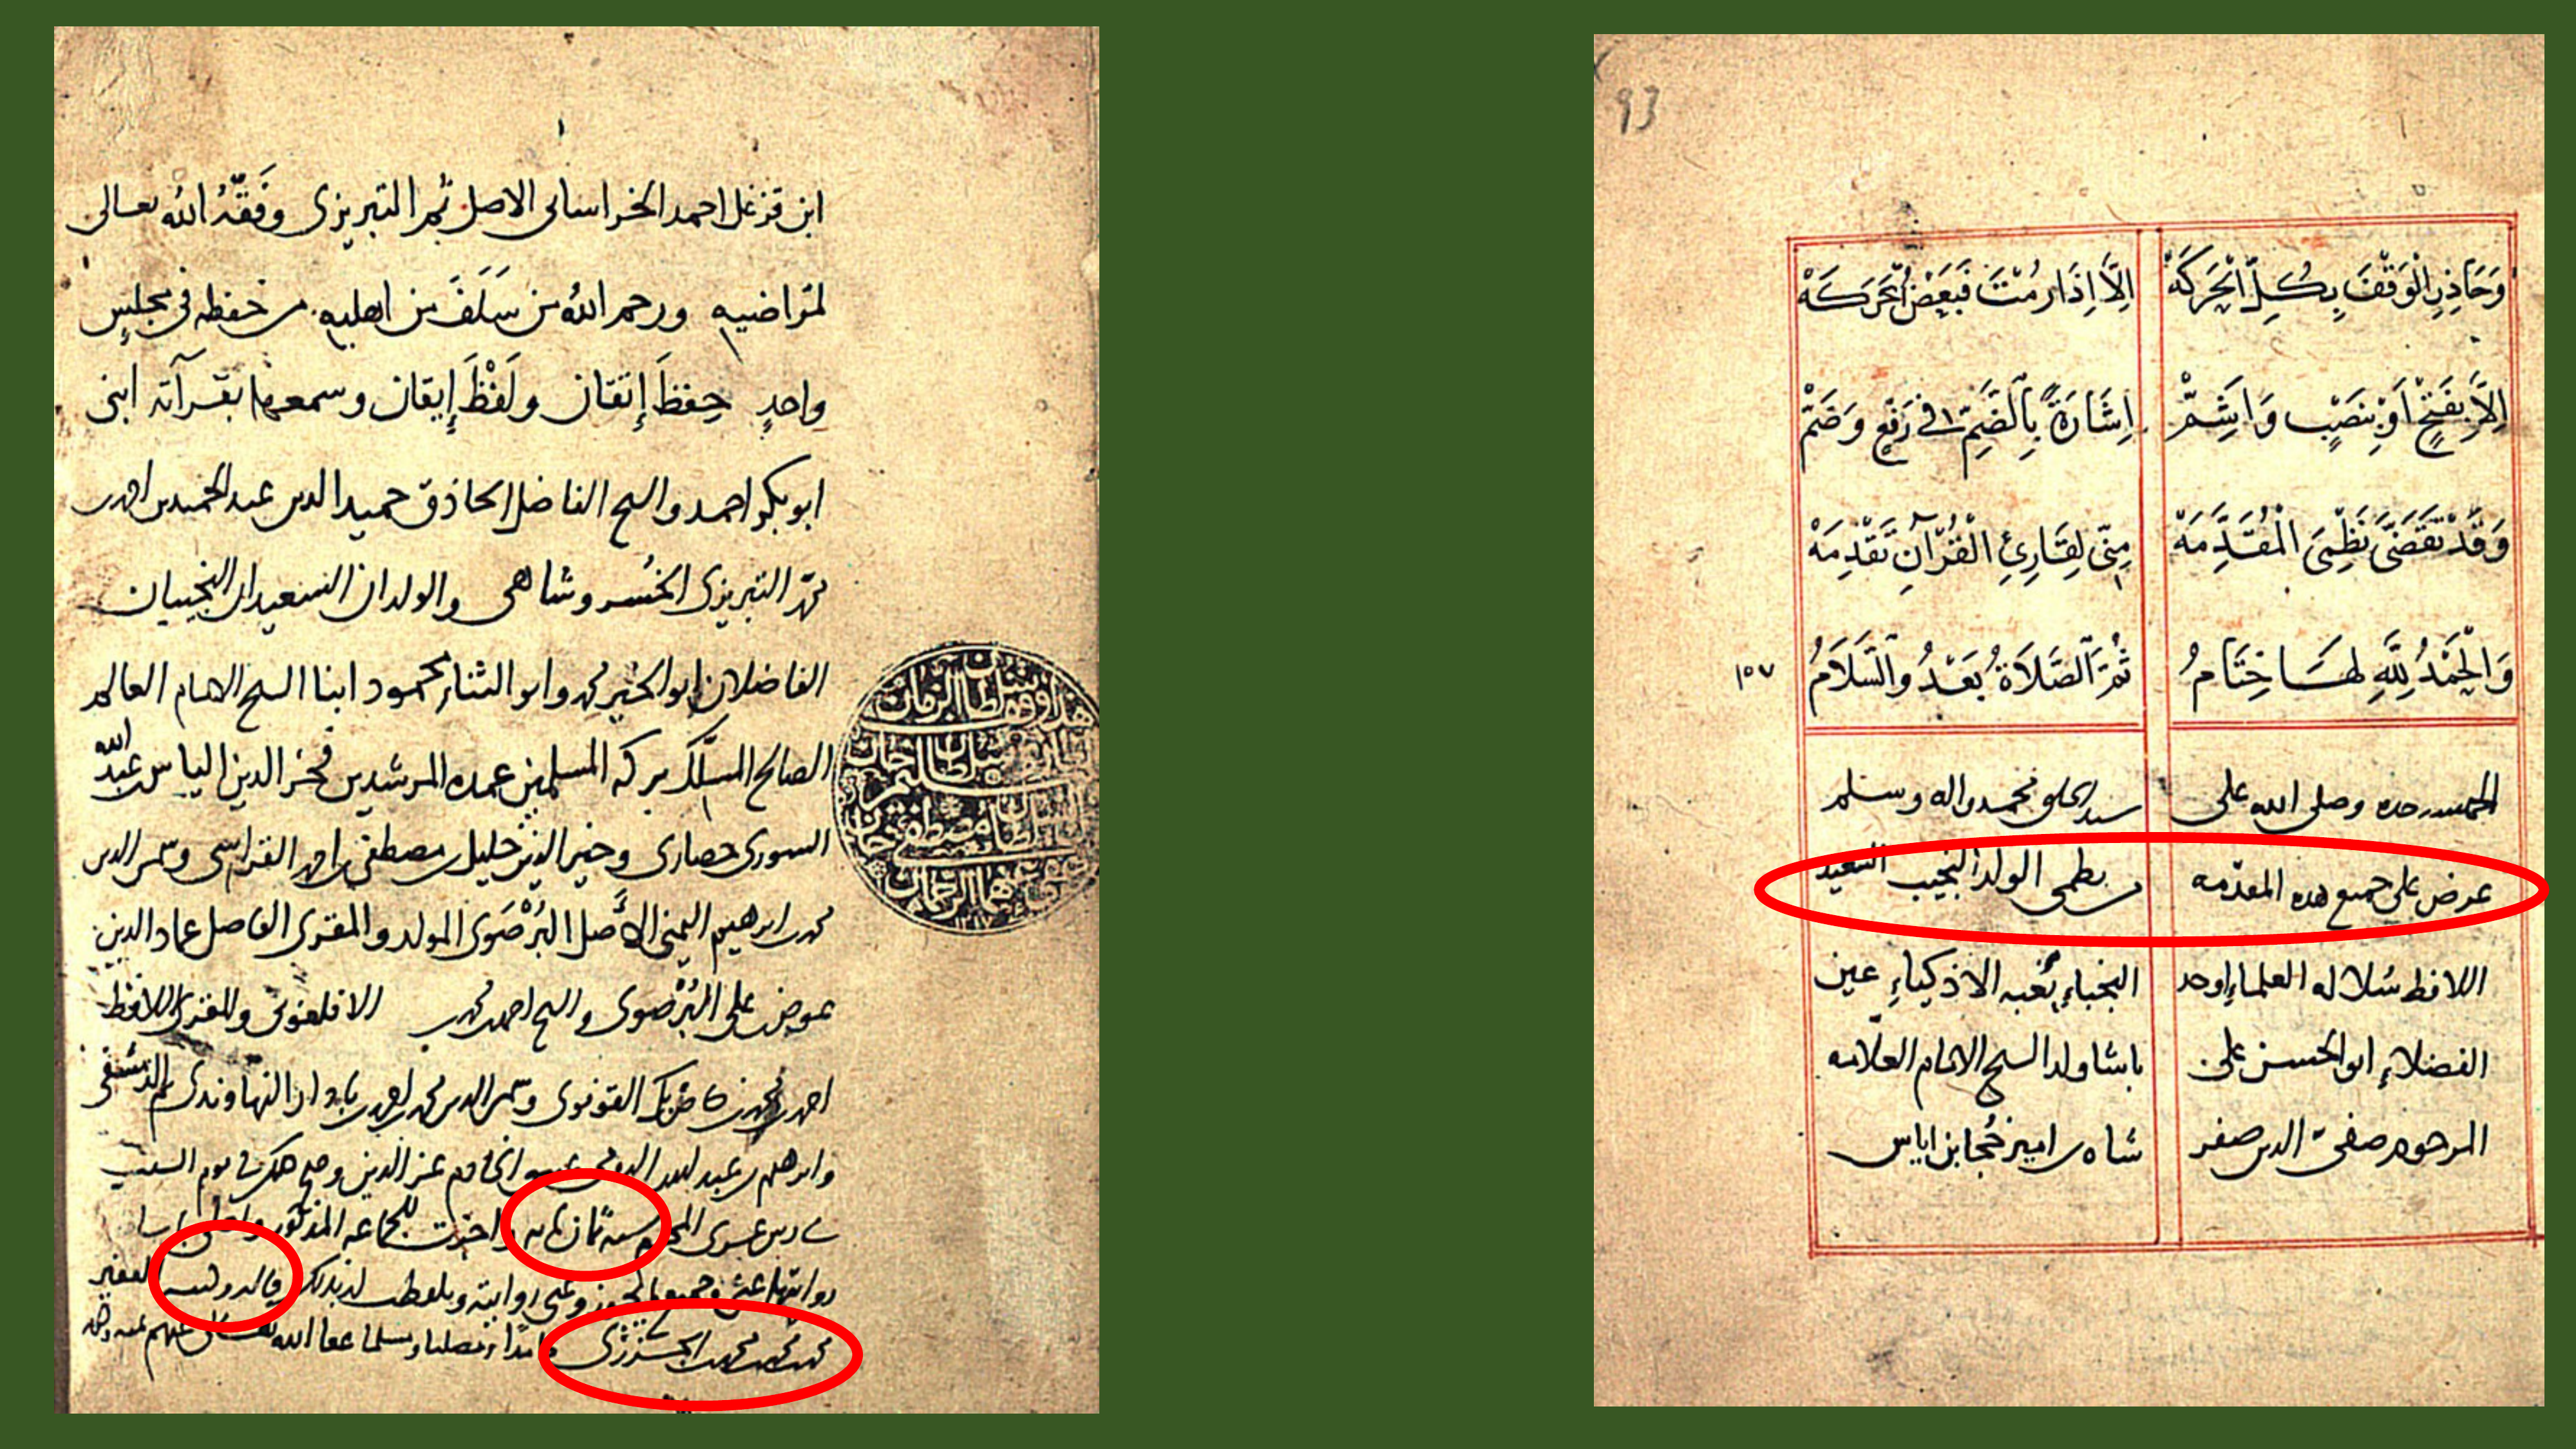 93
وَحَاذِرِ الْوَقْفَ بِكُلِّ الْحَرَكَهْ إِلَّا إِذَا رُمْتَ فَبَعْضُ الْحَرَكَهْ
إِلَّا بِفَتْحٍ أَوْ بِنَصْبٍ وَأَشِمّْ إِشَارَةً بِالضَّمِّ فِي رَفْعٍ وَضَمّْ
وَقَدْ تَقَضَّى نَظْمِيَ الْمُقَدِّمَهْ مِنِّي لِقَارِئِ الْقُرْآنِ تَقْدِمَهْ
وَالْحَمْدُ لِلَّهِ لَهَا خِتَامُ ثُمَّ الصَّلَاةُ بَعْدُ وَالسَّلَامُ
١٠٧
الحمد لله وحده وصلى الله على سيد الخلق محمد واله وسلم
عرض على جميع هذه المقدّمه من نظمى الولد النجيب السعيد
اللافظ سُلاله العلماء اوحد النجباء نُخبه الاذكياءِ عين
الفضلاءِ ابو الحسن على باشا ولد السح الامام العلّامه
المرحوم صفىّ الدين صفر شاه بن امير خُجا بن اياس
ابن قزغل احمد الخراسانى الاصل ثم التبريزى وَفَقّهُ الله تعالى
لمَراضيهِ ورحم اللهُ من سَلَفَ من اهليهِ من حفظه فى مجلسٍ
واحدٍ حِفظَ إتقان ولَفْظَ إيقان وسمعها بقرآته ابنى
ابو بكر احمد والسح الفاضل الحاذق حميد الدين عبد الحميد بن احمد بن
محمد التبريزى الخُسروشاهى والولدان السعيدان النجيبان
الفاضلان ابو الخير محمد وابو الثناء محمود ابنا السح الامام العالم
الصالح المسلّك بركه المسلمين عمده المرشدين فخر الدين الياس بن عبد الله
السورى حصارى وخير الدين خليل بن مصطفى بن احمد القراسى وشمس الدين
محمد بن ابرهيم اليمنى الأصل البُرْصَوى المولد والمقرى الفاضل عماد الدين
عوض بن على البُرْصوى والسح احمد بن محمد بن الافلغونى والمقرى اللافظ
احمد بن محمد بن القونوى وشمس الدين محمد بن احمد بن النهاوندى ثم الدمشقى
وابرهيم بن عبد الله عز الدين وصح ذلك فى يوم السبت
المحرم سنه ثمان مايه واجزت للجماعه المذكورين
روايتها عنى وجميع ما يجوز وعنى روايته وتلفظت لهم بذلك قاله وكتبه الفقير
محمد بن محمد بن محمد بن الجزرى حامدًا ومصليا ومسلما عفا الله تعالى عنهم بمنه وكرمه